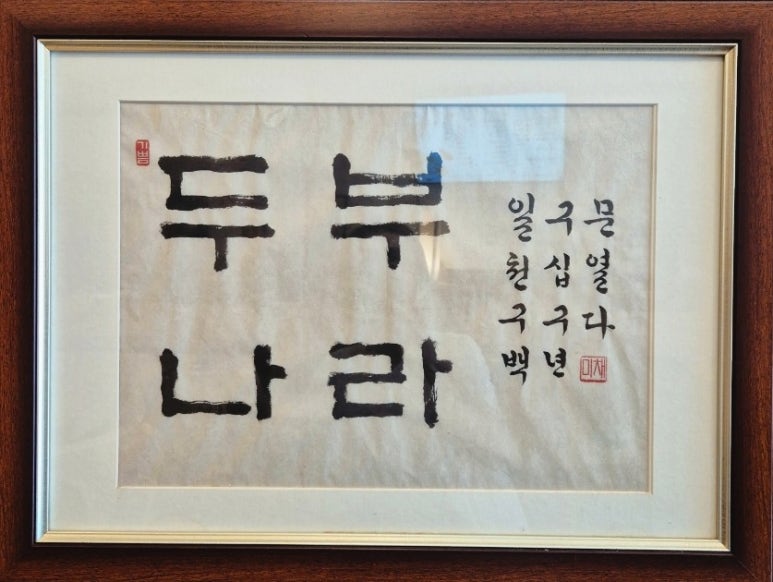 기쁨
두부
나라
일천구백
구십구년
문열다
미채